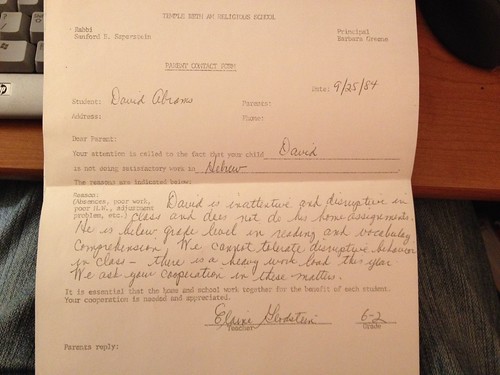 TEMPLE BETH AM RELIGIOUS SCHOOL
Rabbi Principal
Sanford D. Saperstein Barbara
PARENT CONTACT FORM
Date: 9/25/84
Student: David Abrams Parents:
Address: Phone:
Dear Parent:
Your attention is called to the fact that your child David
is not doing satisfactory work in Hebrew
The reasons are indicated below:
Reason:
(Absences, poor work, David is inattentive and disruptive in
poor H.W., adjustment class and does not do his home assignments.
problem, etc.) He is below grade level in reading and vocabulary
comprehension. We cannot tolerate disruptive behavior
in class – there is a heavy work load this year.
We ask your cooperation in these matters.
It is essential that the home and school work together for the benefit of each student.
Your cooperation is needed and appreciated.
Elaine 6-2
Teacher Grade
Parents reply:
hp